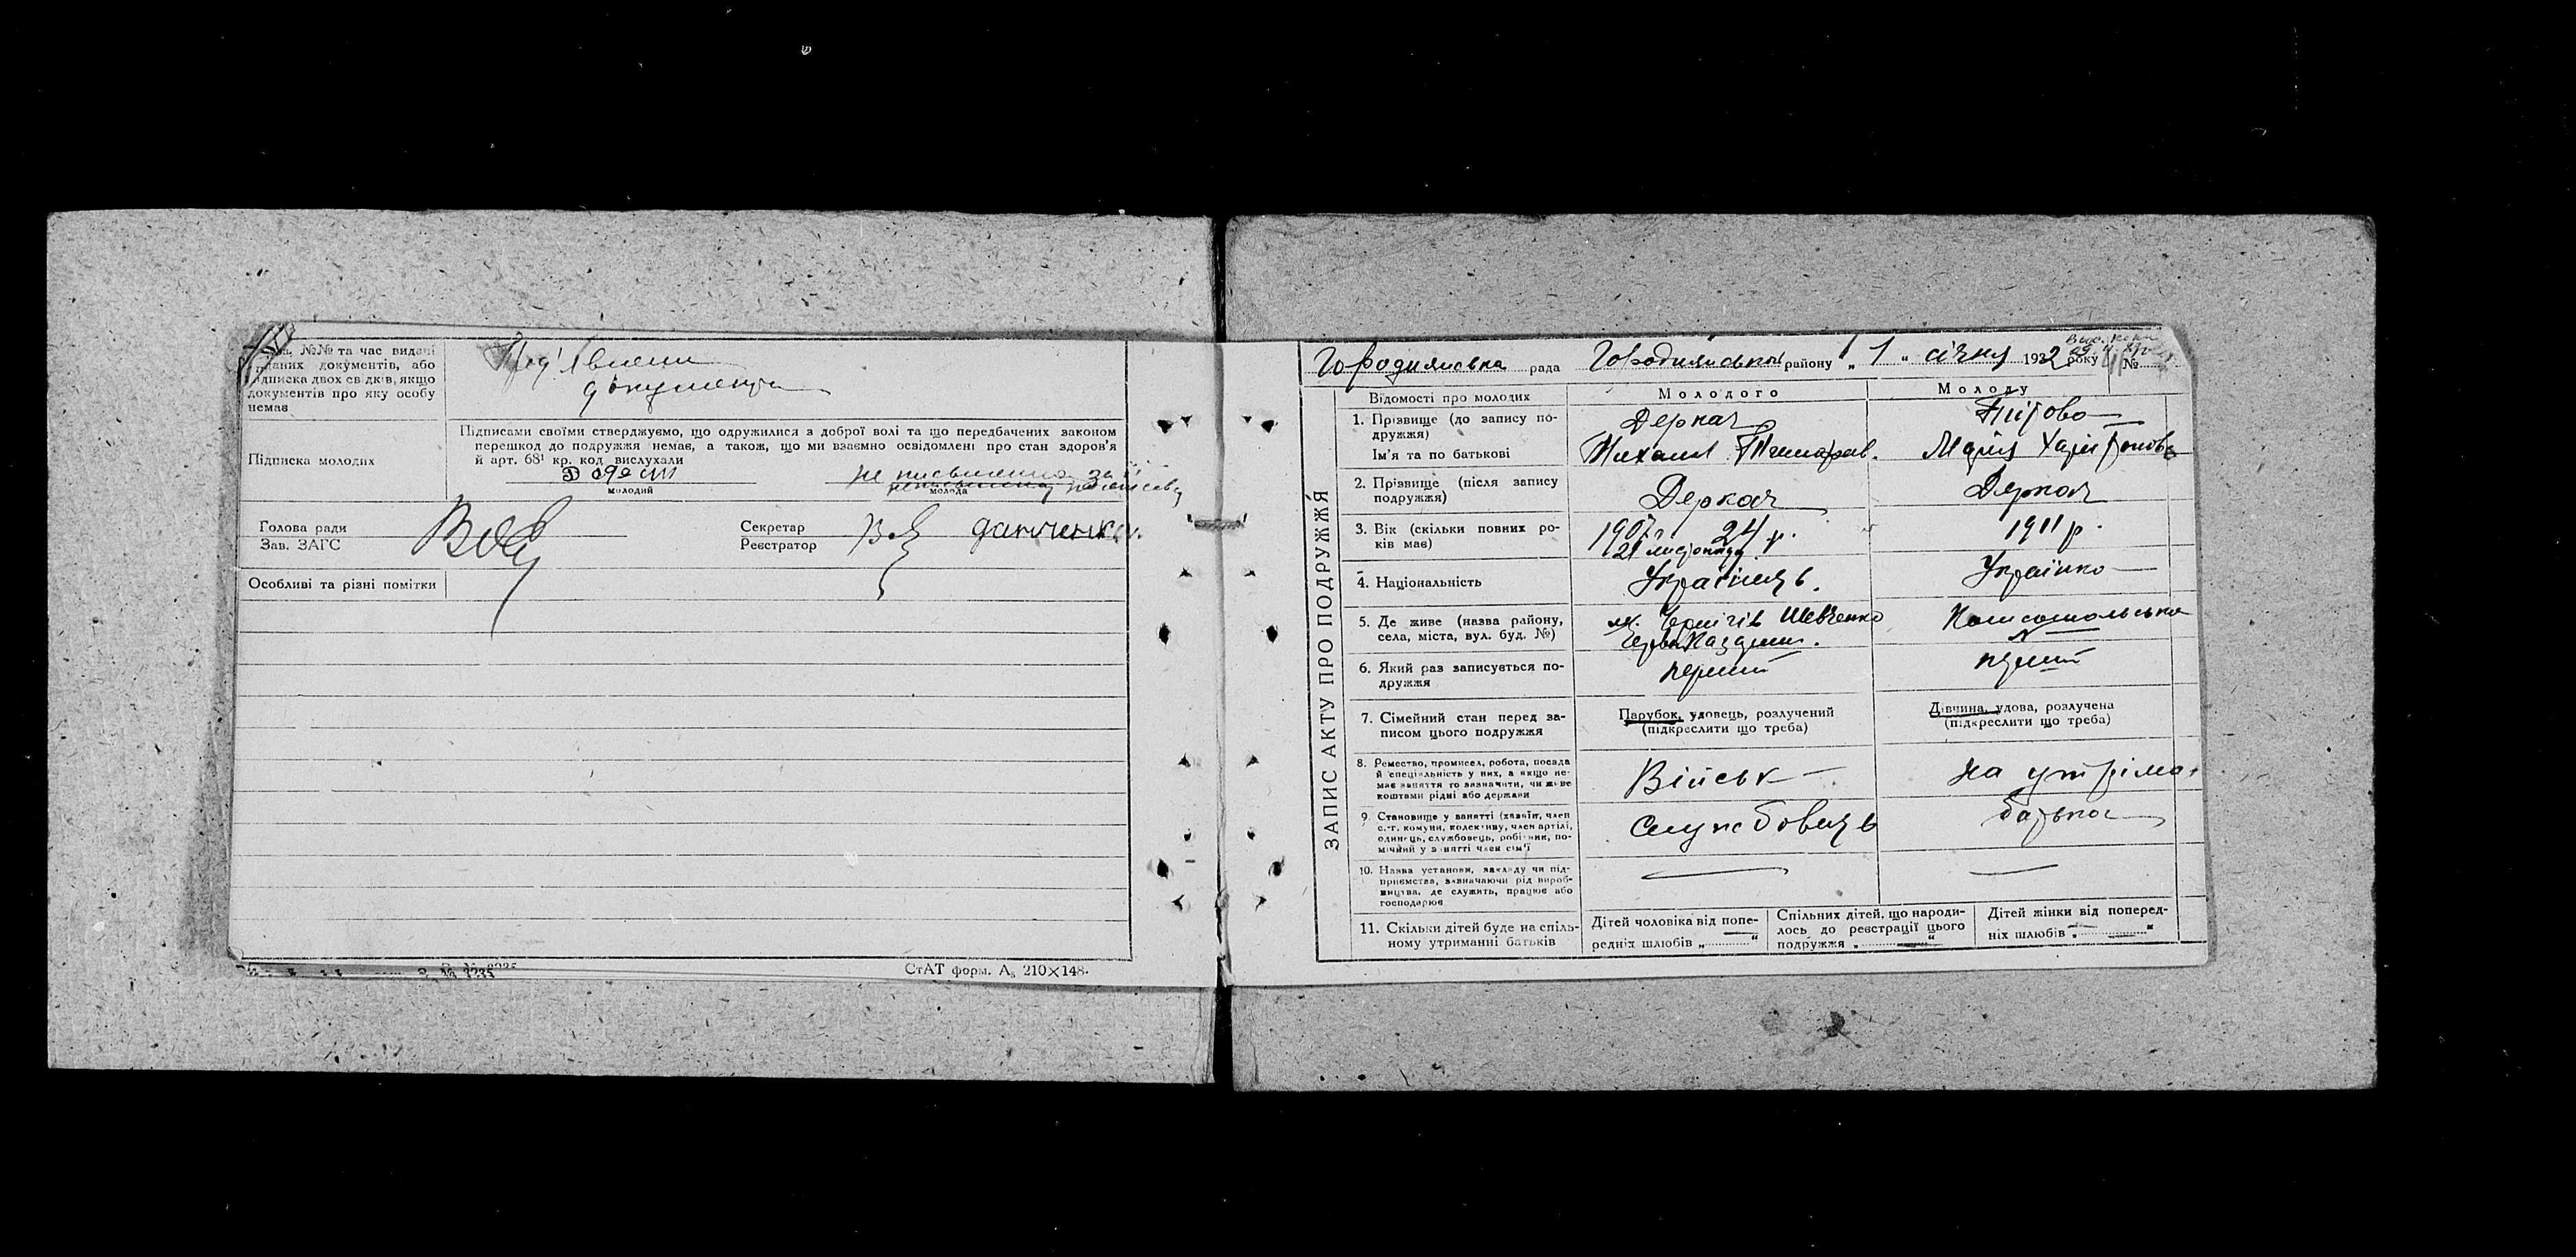 №№ та час видачі
даних документів, або
підписка двох свідків, якщо
документів про яку особу
немає
документи
Підписка молодих
Підписами своїми стверджуємо, що одружилися з доброї волі та що передбачених законом
перешкод до подружжя немає, а також, що ми взаємно освідомлені про стан здоров'я
й арт. 68¹ кр. код вислухали
не письменна за
молодий
молода
Голова ради
Зав. ЗАГС
Секретар
Реєстратор
Особливі та різні помітки
СтАТ форм. А₅ 210×148.
рада району „ 1 “ січня 1932 року №
ЗАПИС АКТУ ПРО ПОДРУЖЖЯ
Відомості про молодих
Молодого
Молоду
1. Прізвище (до запису по-
дружжя)
Деркач
Ім'я та по батькові
Михаил
Марія
2. Прізвище (після запису
подружжя)
Деркач
Деркач
3. Вік (скільки повних ро-
ків має)
1907 24 р.
21 листопада
1911 р.
4. Національність
Українець.
Українка
5. Де живе (назва району,
села, міста, вул. буд. №)
м. Чернігів Шевченка
Комсомольська
6. Який раз записується по-
дружжя
перший
перший
7. Сімейний стан перед за-
писом цього подружжя
Парубок, удовець, розлучений
(підкреслити що треба)
Дівчина, удова, розлучена
(підкреслити що треба)
8. Ремество, промисел, робота, посада
й спеціальність у них, а якщо не-
має заняття то зазначити, чи живе
коштами рідні або держави
Військ
на утріма
9. Становище у занятті (хазяїн, член
с.-г. комуни, колективу, член артілі,
одинець, службовець, робітник, по-
мічний у занятті член сім'ї
службовець
батька
10. Назва установи, закладу чи під-
приємства, зазначаючи рід вироб-
ництва, де служить, працює або
господарює
11. Скільки дітей буде на спіль-
ному утриманні батьків
Дітей чоловіка від попе-
редніх шлюбів „ “
Спільних дітей, що народи-
лось до реєстрації цього
подружжя „ “
Дітей жінки від поперед-
ніх шлюбів „ “